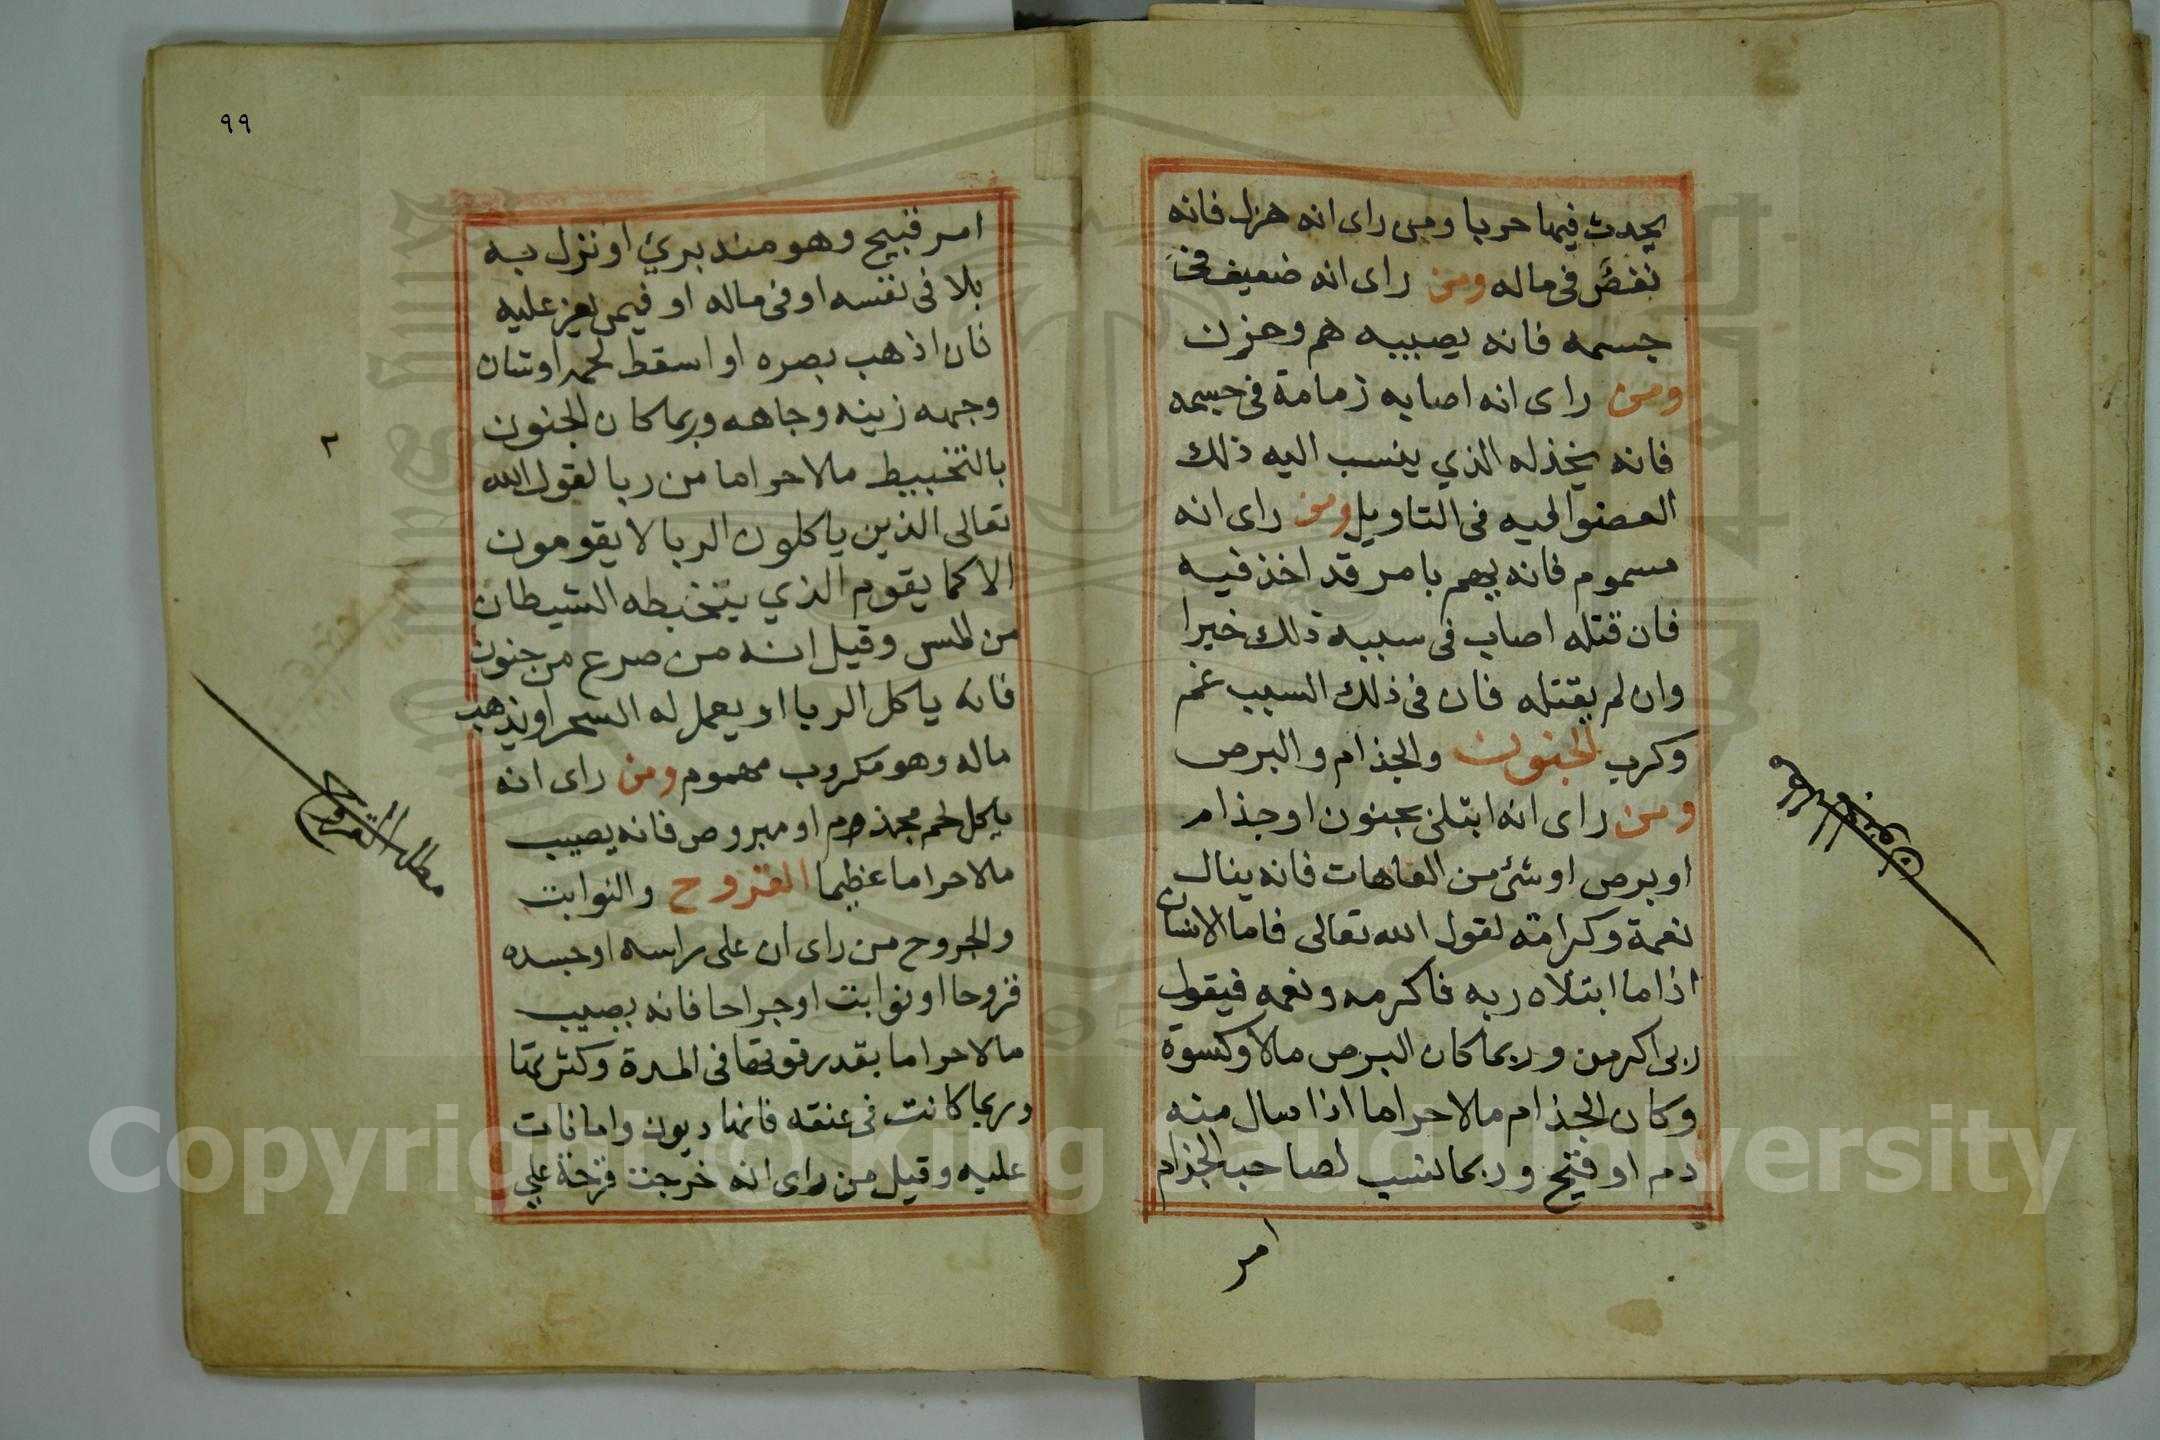 يحدث فيها حربا ومن راى انه هزل فانه
نقص فى ماله ومن راى انه ضعيف فى
جسمه فانه يصيبه هم وحزن
ومن راى انه اصابه زمامة فى جسمه
فانه يخذله الذي ينسب اليه ذلك
العضو اليه فى التاويل ومن راى انه
مسموم فانه يهم بامر قد اخذ فيه
فان قتله اصاب فى سببه ذلك خيرا
وان لم يقتله فان فى ذلك السبب غم
وكرب الجنون والجذام والبرص
ومن راى انه ابتلى بجنون او جذام
او برص او شئ من العاهات فانه ينال
نعمة وكرامة لقول الله تعالى فاما الانسان
اذا ما ابتلاه ربه فاكرمه ونعمه فيقول
ربى اكرمن وربما كان البرص مالا وكسوة
وكان الجذام مالا حراما اذا سال منه
دم او قيح وربما نسب لصاحب الجذام
امر
٩٩
٢
امر قبيح وهو منه بريئ او نزل به
بلا فى نفسه او فى ماله او فيمن يعز عليه
فان اذهب بصره او اسقط لحمه او شان
وجهه زينه وجاهه وربما كان الجنون
بالتخبيط مالا حراما من ربا لقول الله
تعالى الذين ياكلون الربا لا يقومون
الا كما يقوم الذي يتخبطه الشيطان
من المس وقيل انه من صرع من جنون
فانه ياكل الربا او يعمل له السحر او يذهب
ماله وهو مكروب مهموم ومن راى انه
ياكل لحم مجذوم او مبروص فانه يصيب
مالا حراما عظيما القروح والنوابت
والجروح من راى ان على راسه او جسده
قروحا او نوابت او جراحا فانه يصيب
مالا حراما بقدر قوتها فى المدة وكثرتها
وربما كانت فى عنقه فانها ديون وامانات
عليه وقيل من راى انه خرجت قرحة على
مطلب القروح
Copyright © King Saud University